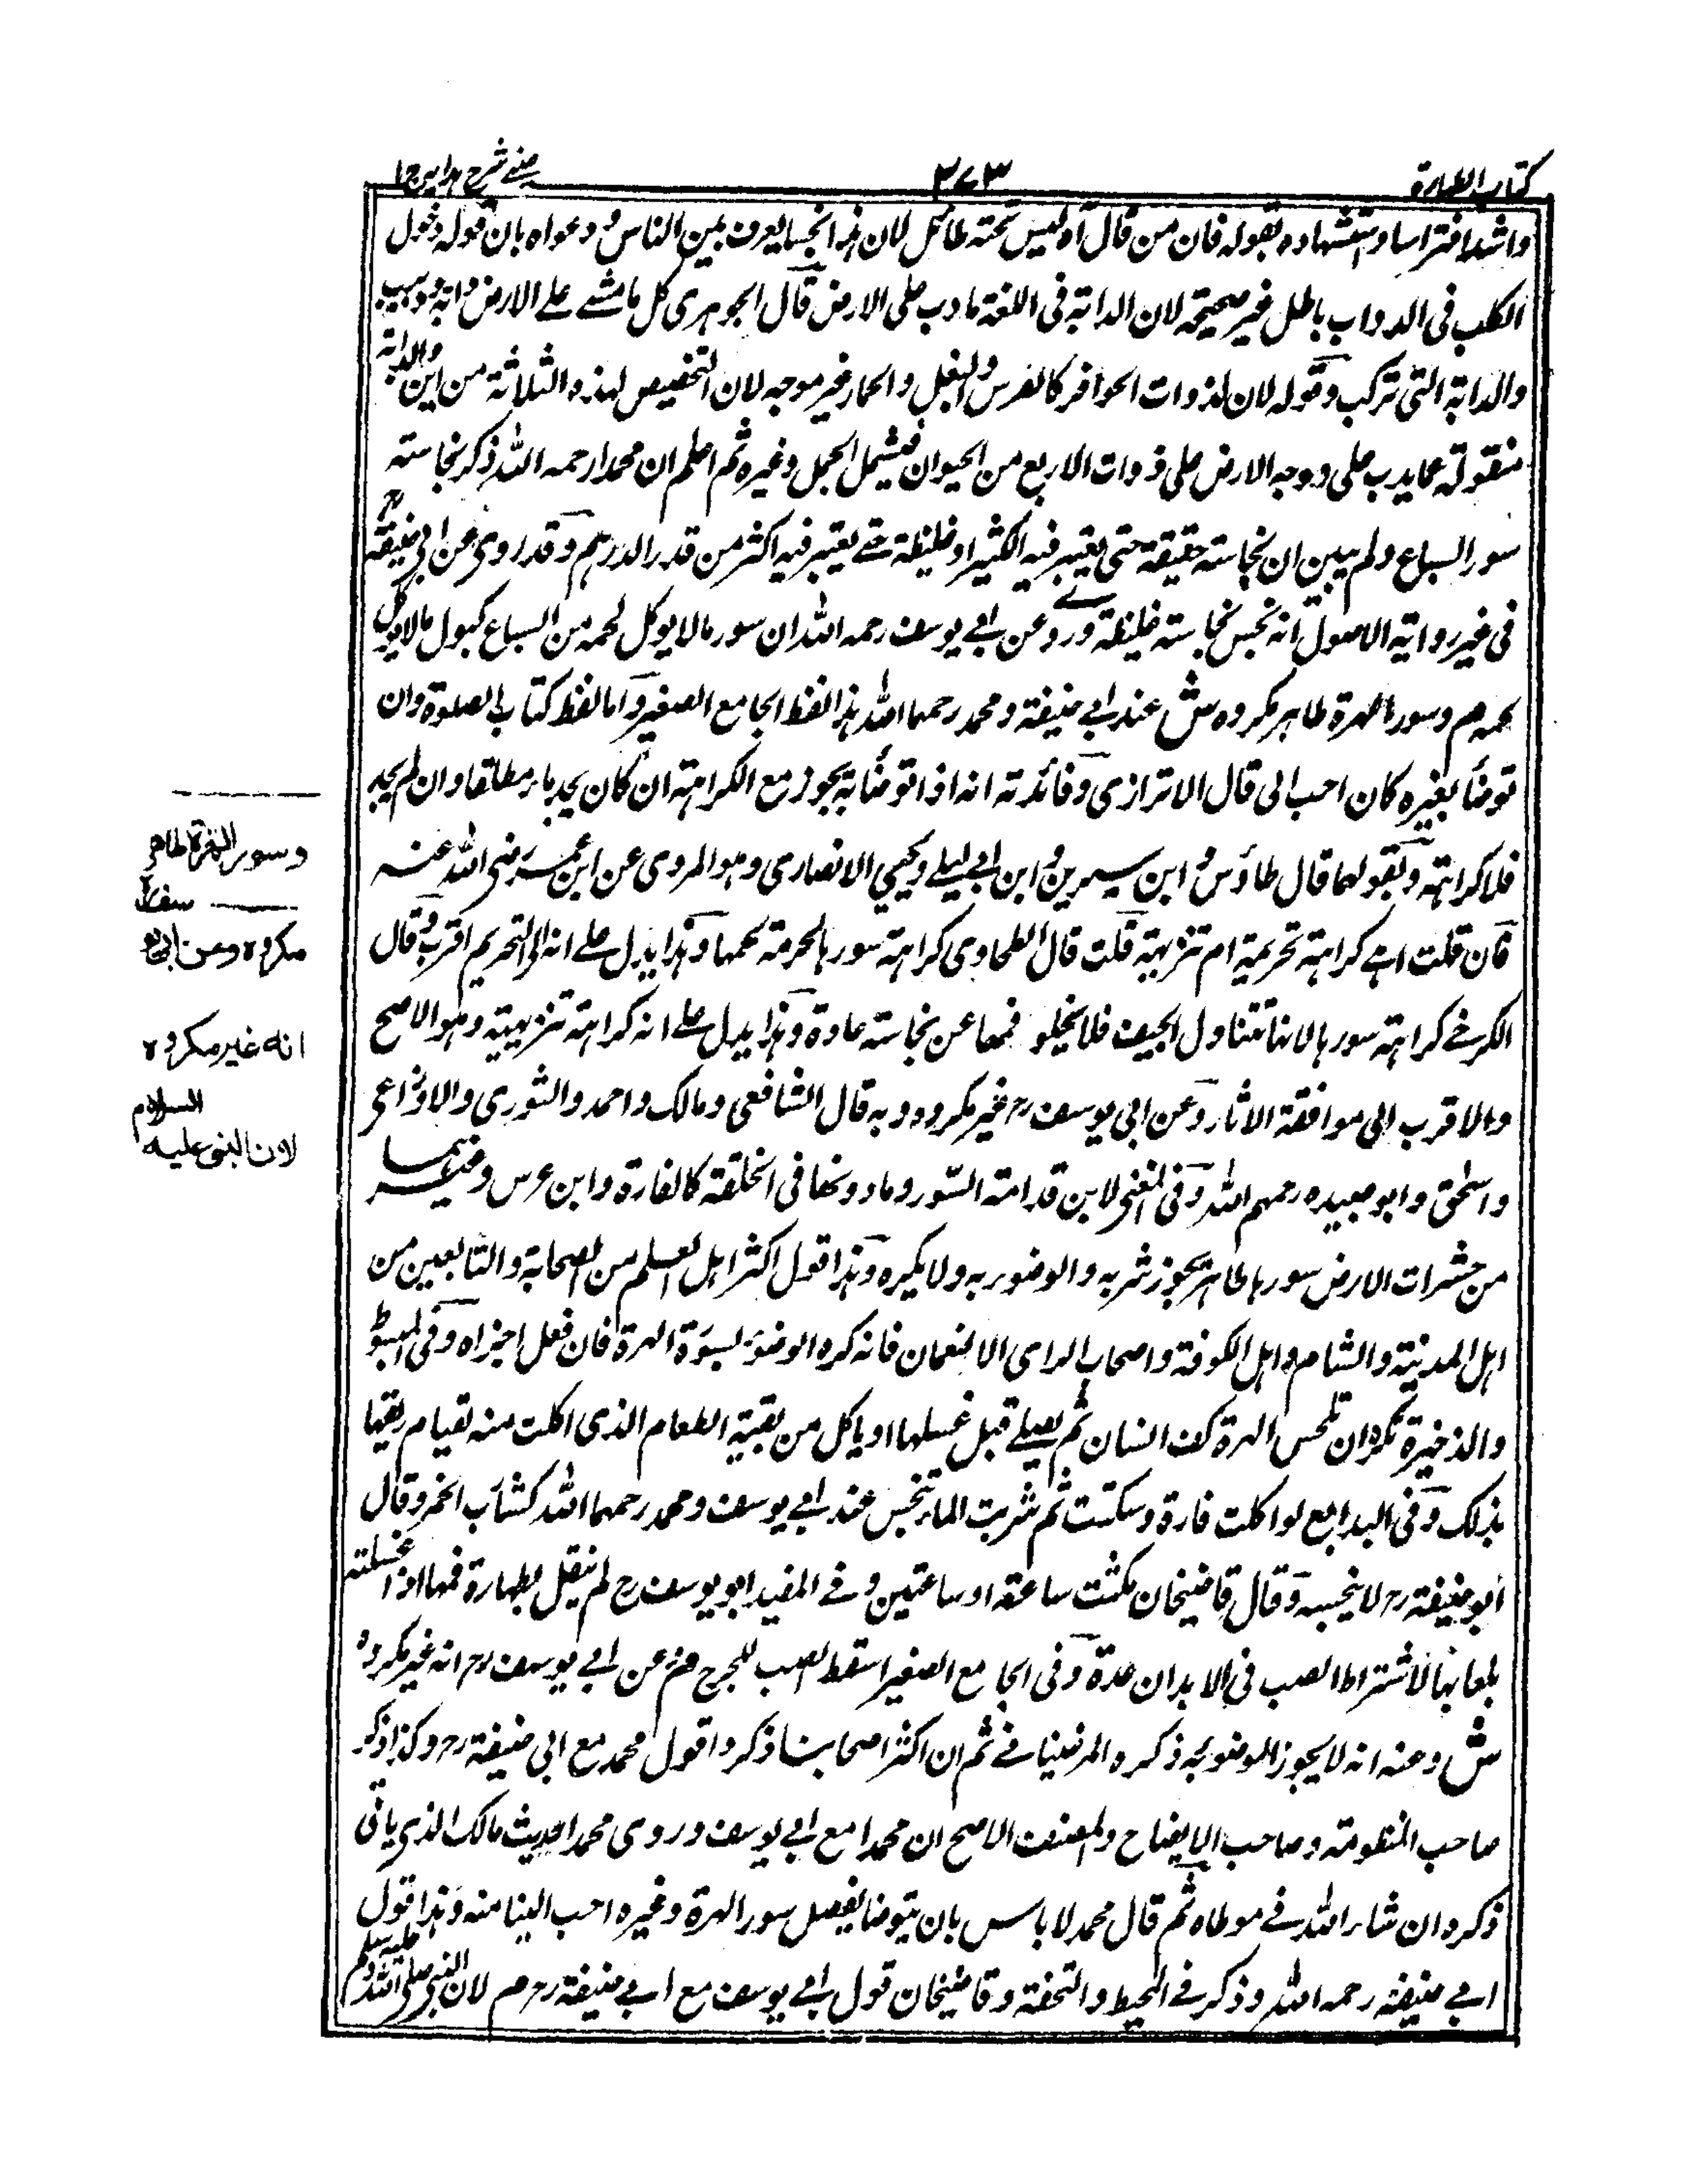 كتاب الطهارة
٢٧٣
عينى شرح هدايه ج١
واشد افتراسا واستشهاده بقوله فان من قال آه ليس تحته طائل لان هذا انحسا يعرف بين الناس ودعواه بان قوله دخول
الكلب فى الدواب باطل غير صحيحة لان الدابة فى اللغة ما دب على الارض قال الجوهرى كل ما مشے علے الارض دابة ودبيب
والدابة التى تركب وقوله لان لذوات الحوافر كالفرس والبغل والحمار غير موجه لان التخصيص لهذه الثلاثة من اين والدابة
منقولة عما يدب على وجه الارض على ذوات الاربع من الحيوان فيشمل الجمل وغيره ثم اعلم ان محمدا رحمه الله ذكر نجاسته
سور السباع ولم يبين ان نجاسته حقيقة حتى يعتبر فيه الكثير او غليظة حتے يعتبر فيه اكثر من قدر الدرهم وقد روى عن ابى حنيفة رح
فى غير رواية الاصول انه نجس نجاسته غليظة وروى عن ابے يوسف رحمه الله ان سور مالا يوكل لحمه من السباع كبول مالا يوكل
لحمه م وسور الهرة طاهر مكروه ش عند ابے حنيفة ومحمد رحمهما الله هذا لفظ الجامع الصغير واما لفظ كتاب الصلوة وان
توضأ بغيره كان احب الى قال الاترازى وفائدته انه اذا توضأ به يجوز مع الكراهة ان كان يجد ماء مطلقا وان لم يجد
فلا كراهة وبقولهما قال طاؤس وابن سيرين وابن ابے ليلے ويحيي الانصارى وهو المروى عن ابن عمر رضى الله عنه
فان قلت اهے كراهة تحريمية ام تنزيهية قلت قال الطحاوى كراهة سورها لحرمة لحمها وهذا يدل علے انه الى التحريم اقرب وقال
الكرخے كراهة سورها لانها تتناول الجيف فلا يخلو فمها عن نجاسته عادة وهذا يدل علے انه كراهة تنزيهية وهو الاصح
والاقرب الى موافقة الاثار وعن ابى يوسف رح غير مكروه وبه قال الشافعى ومالك واحمد والثورى والاوزاعى
واسحق وابو عبيده رحمهم الله وفى المغنى لابن قدامة السنور وما دونها فى الخلقة كالفارة وابن عرس وغيرهما
من حشرات الارض سورها طاهر يجوز شربه والوضور به ولا يكره وهذا قول اكثر اهل العلم من الصحابة والتابعين من
اهل المدينة والشام واهل الكوفة واصحاب الراى الا لنعمان فانه كره الوضوء بسؤرة الهرة فان فعل اجزاه وفى المبسوط
والذخيرة تكره ان تلحس الهرة كف انسان ثم يصلے قبل غسلها او ياكل من بقية الطعام الذى اكلت منه لقيام ريقها
بذلك وفى البدايع لو اكلت فارة وسكتت ثم شربت الماء تنجس عند ابے يوسف ومحمد رحمهما الله كشارب الخمر وقال
أبو حنيفة رح لا ينجسه وقال قاضيخان مكثت ساعة او ساعتين وفے المفيد ابو يوسف رح لم يقل بطهارة فمها اذا غسلته
بلعابها لاشتراط الصب فى الابدان عدة وفى الجامع الصغير اسقط الصب للحرج م وعن ابے يوسف رح انه غير مكروه
ش وعنه انه لا يجوز الوضوء به ذكره المرغينانے ثم ان اكثر اصحابنا ذكروا قول محمد مع ابى حنيفة رح وكذا ذكر
صاحب المنظومة وصاحب الايضاح والمصنف الاصح ان محمدا مع ابے يوسف وروى محمد احديث مالك الذى ياتى
ذكره ان شاء الله فے موطاه ثم قال محمد لا باس بان يتوضا بفضل سور الهرة وغيره احب الينا منه وهذا قول
ابے حنيفة رحمه الله وذكر فے المحيط والتحفة وقاضيخان قول ابے يوسف مع ابے حنيفة رح م لان النبى صلى الله عليه وسلم
وسور الهرة طاهر
مكروه وعن ابى
انه غير مكروه
السلام
لان النبى عليه